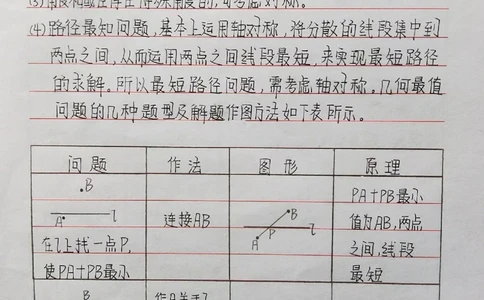 (4)路径最短问题,基本上运用轴对称,将分散的线段集中到
两点之间,从而运用两点之间线段最短,来实现最短路径
的求解。所以最短路径问题,需考虑轴对称。几何最值
问题的几种题型及解题作图方法如下表所示。
问题 作法 图形 原理
B
A l
在l上找一点P,
使PA+PB最小
连接AB
B
l
P
A
PA+PB最小
值为AB,两点
之间,线段
最短
B